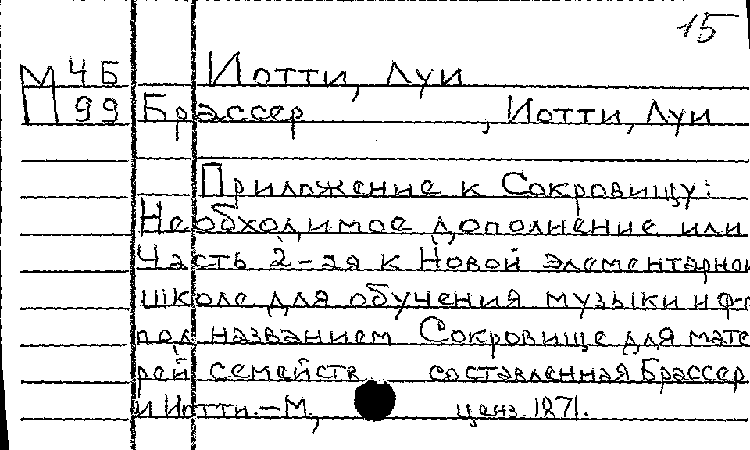 15
М 4Б Иотти, Луи
П 99 Брассер , Иотти, Луи
Приложение к Сокровищу:
Необходимое дополнение или
Часть 2-ая к Новой элементарной
школе для обучения музыки и ф-п
под названием Сокровище для мате
рей семейств составленная Брассер
и Иотти.-М, ценз. 1871.